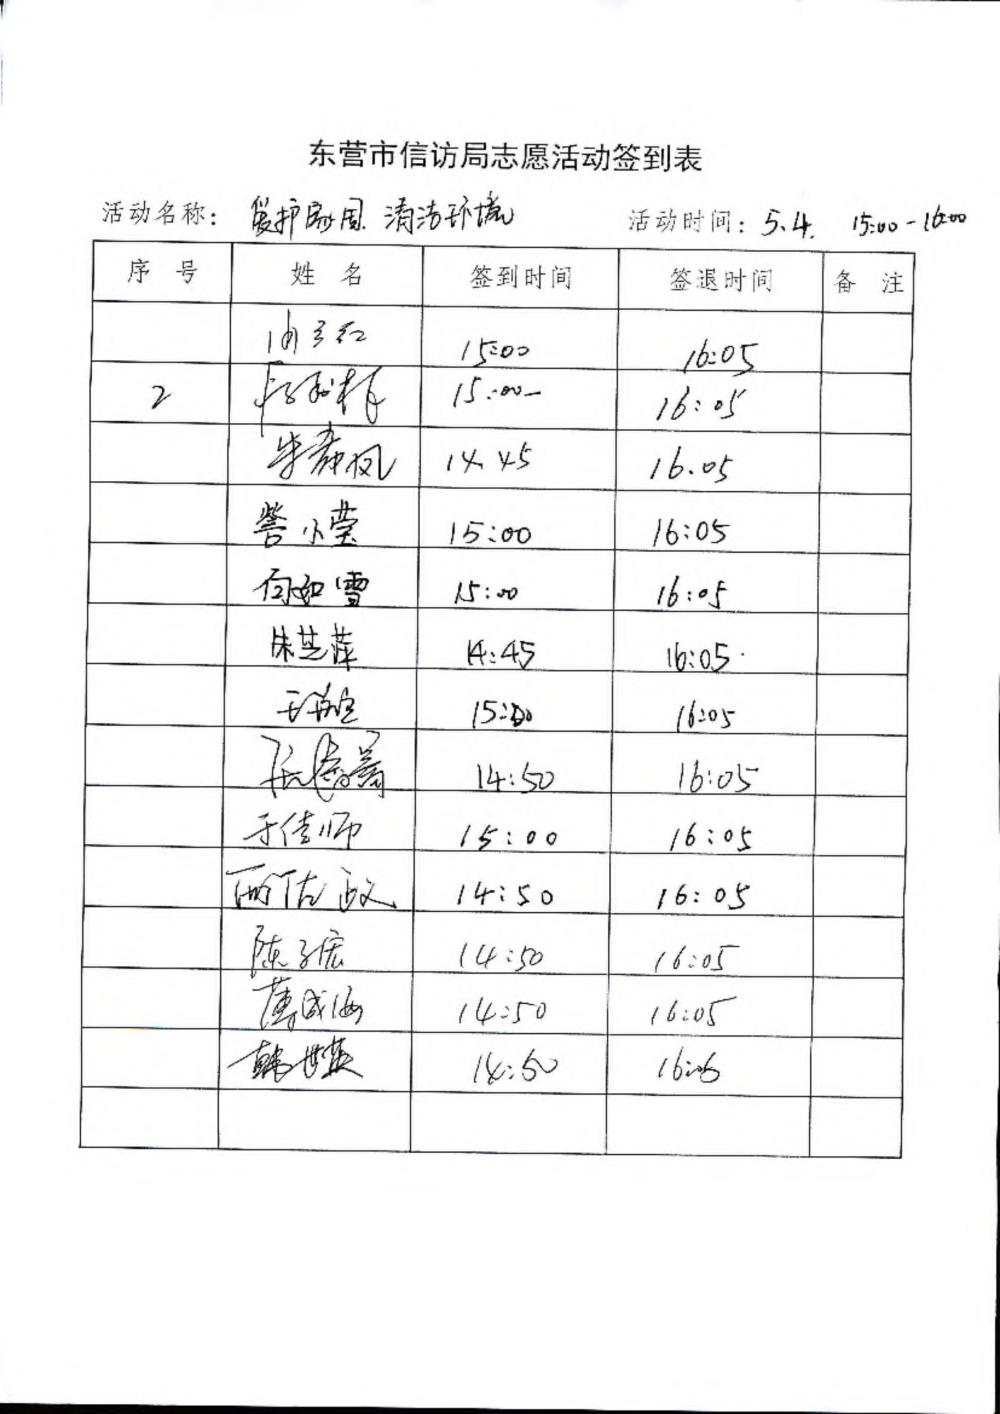 东营市信访局志愿活动签到表
活动名称： 爱护家园 清洁环境 活动时间： 5.4. 15:00-16:00
序 号 姓 名 签到时间 签退时间 备 注
15:00 16:05
2 15:00- 16:05
14.45 16.05
訾小莹 15:00 16:05
15:00 16:05
朱芝萍 14:45 16:05
15:00 16:05
14:50 16:05
于佳师 15:00 16:05
14:50 16:05
陈子宏 14:50 16:05
薄成海 14:50 16:05
韩世英 14:50 16:05